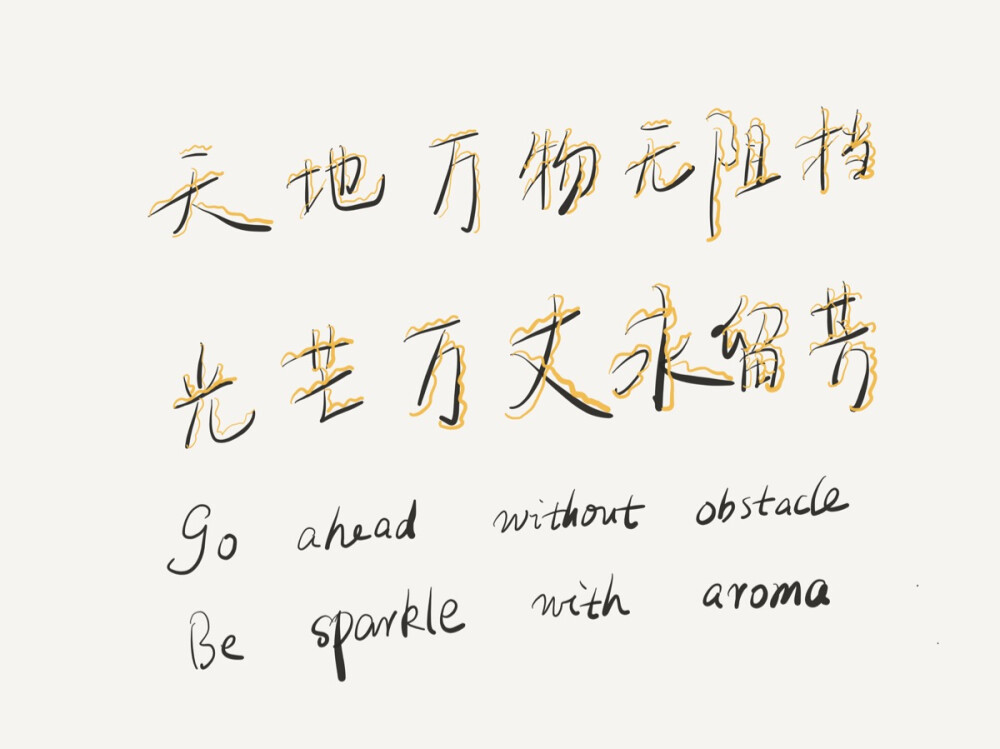 天地万物无阻挡
光芒万丈永留芳
Go ahead without obstacle
Be sparkle with aroma